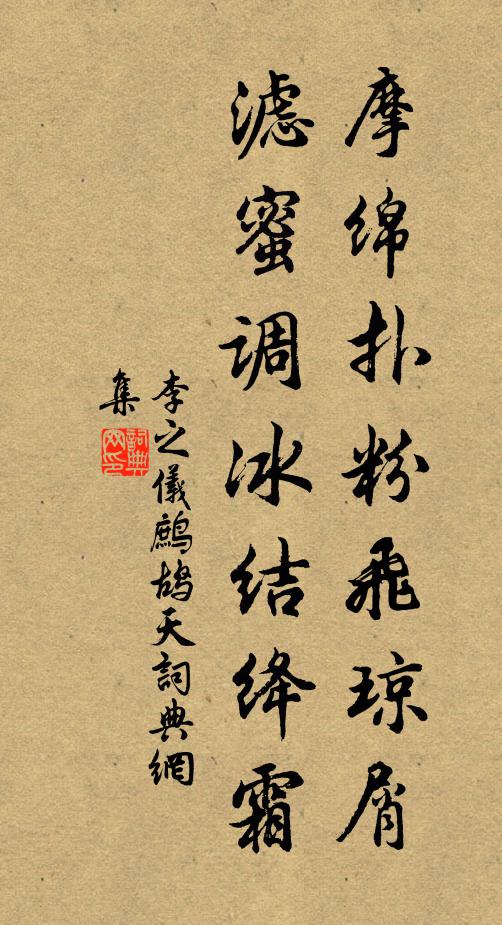 摩绵扑粉飛琼屑
滤蜜调冰结绛霜
李之儀鷓鴣天詞典網
集
詞典网印